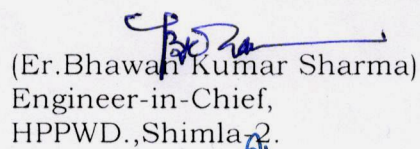 (Er.Bhawan Kumar Sharma)
Engineer-in-Chief,
HPPWD.,Shimla-2.